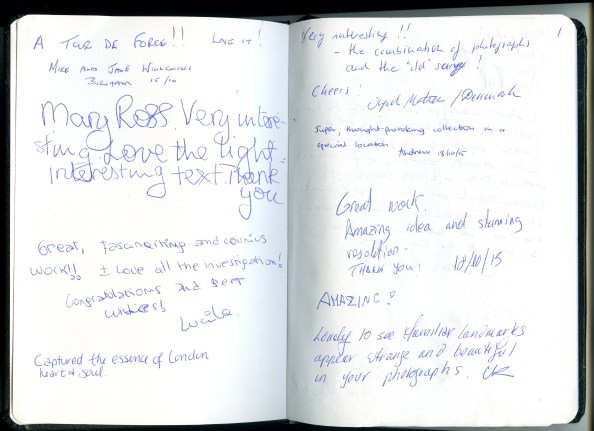 A TOUR DE FORCE!! LOVE IT!
MIKE AND JANE
15/10
Mary Ross. Very intere-
sting. Love the light.
interesting text. Thank
you
Great, fascinating and curious
WORK!! I Love all the investigation!
Congratulations and BEST
wishes!
Lucila.
Captured the essence of London
heart & soul.
Very interesting!!
- the combination of photographs
and the "old" !
Cheers!
/Denmark
Super, thought-provoking collection in a
special location.
Andrew 18/10/15
Great work.
Amazing idea and stunning
resolution.
THANK YOU! 18/10/15
AMAZING!
Lovely to see familiar landmarks
appear strange and beautiful
in your photographs.